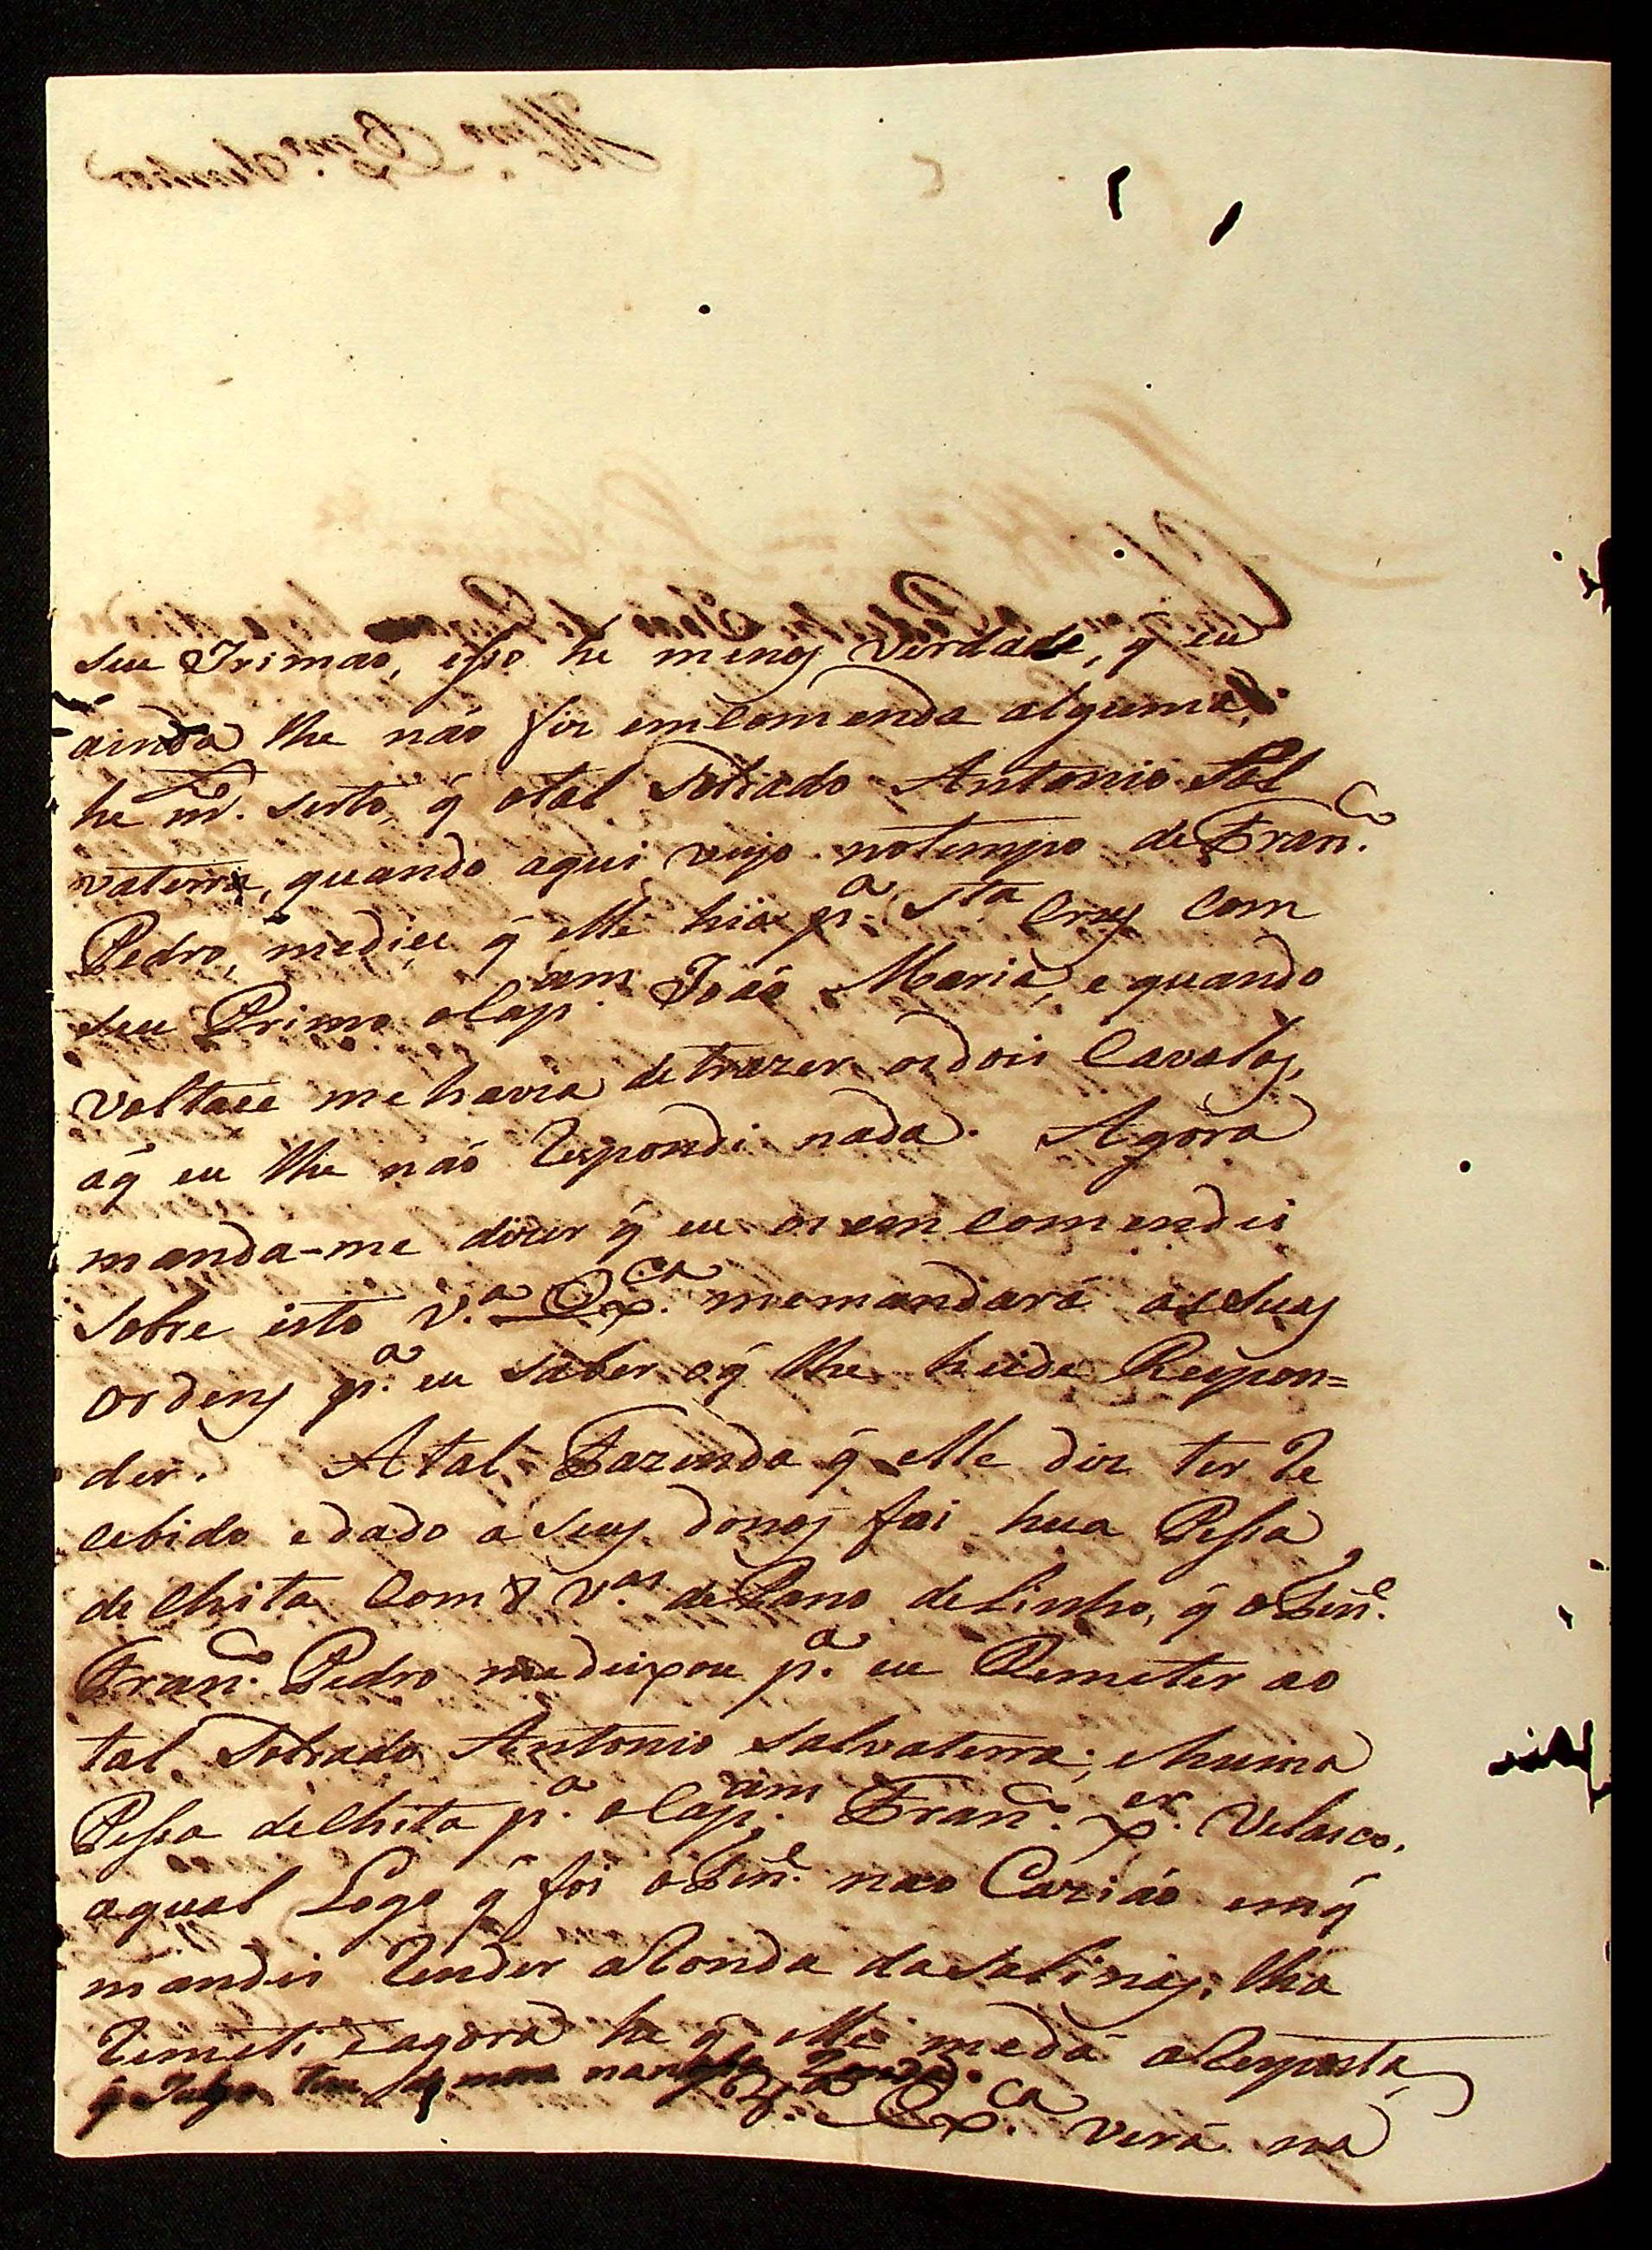 seu Irimao, isso he menos verdade, q̃ eu
ainda lhe não fiz emcomenda alguma,
he m.ᵗᵒ serto, q̃ otal Sobrado Antonio Sal
vaterra, quando aqui veyo notempo de Fran.ᶜᵒ
Pedro, medice q̃ elle hia p.ᵃ Sta Crus com
seu Primo oCap.ᵃᵐ João Maria, e quando
voltace mehavia detrazer osdois Cavalos,
áq̃ eu lhe não Respondi nada. Agora
manda-me dizer q̃ eu os emcomendei
sobre isto V.ᵃ Ex.ᶜᵃ memandará assuas
ordens p.ᵃ eu saber oq̃ lhe heide Respon=
der. Atal Fazenda q̃ elle diz ter Re
cebido edado aseus donos foi hua Pessa
de Chita Com 8 V.ᵃˢ dePano deLinho, q̃ oTen.ᵉ
Fran.ᶜᵒ Pedro medeixou p.ᵃ eu Remeter ao
tal Sobrado Antonio Salvaterra; ehuma
Pessa deChita p.ᵃ oCap.ᵃᵐ Fran.ᶜᵒ X.ᵉʳ Velasco,
aqual Logo q̃ foi oTen.ᵉ nao Carião emq̃
mandei Render aRonda daSalinas, lha
Remeti eagora he q̃ elle medá aResposta,
q̃ Julgo
V.ᵃ Ex.ᶜᵃ verá na